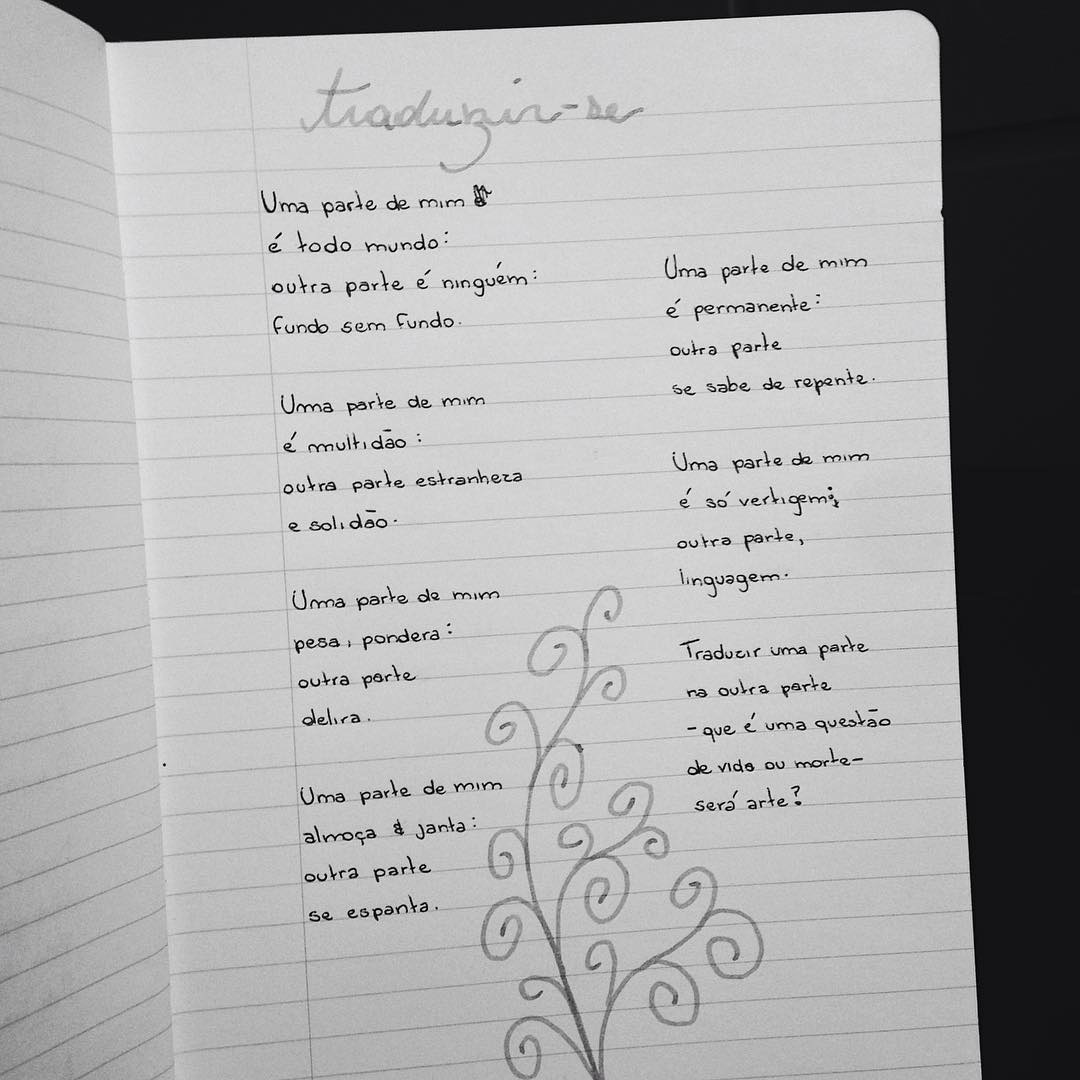 traduzir-se
Uma parte de mim
é todo mundo:
outra parte é ninguém:
fundo sem fundo.
Uma parte de mim
é multidão:
outra parte estranheza
e solidão.
Uma parte de mim
pesa, pondera:
outra parte
delira.
Uma parte de mim
almoça & janta:
outra parte
se espanta.
Uma parte de mim
é permanente:
outra parte
se sabe de repente.
Uma parte de mim
é só vertigem;
outra parte,
linguagem.
Traduzir uma parte
na outra parte
-que é uma questão
de vida ou morte-
será arte?